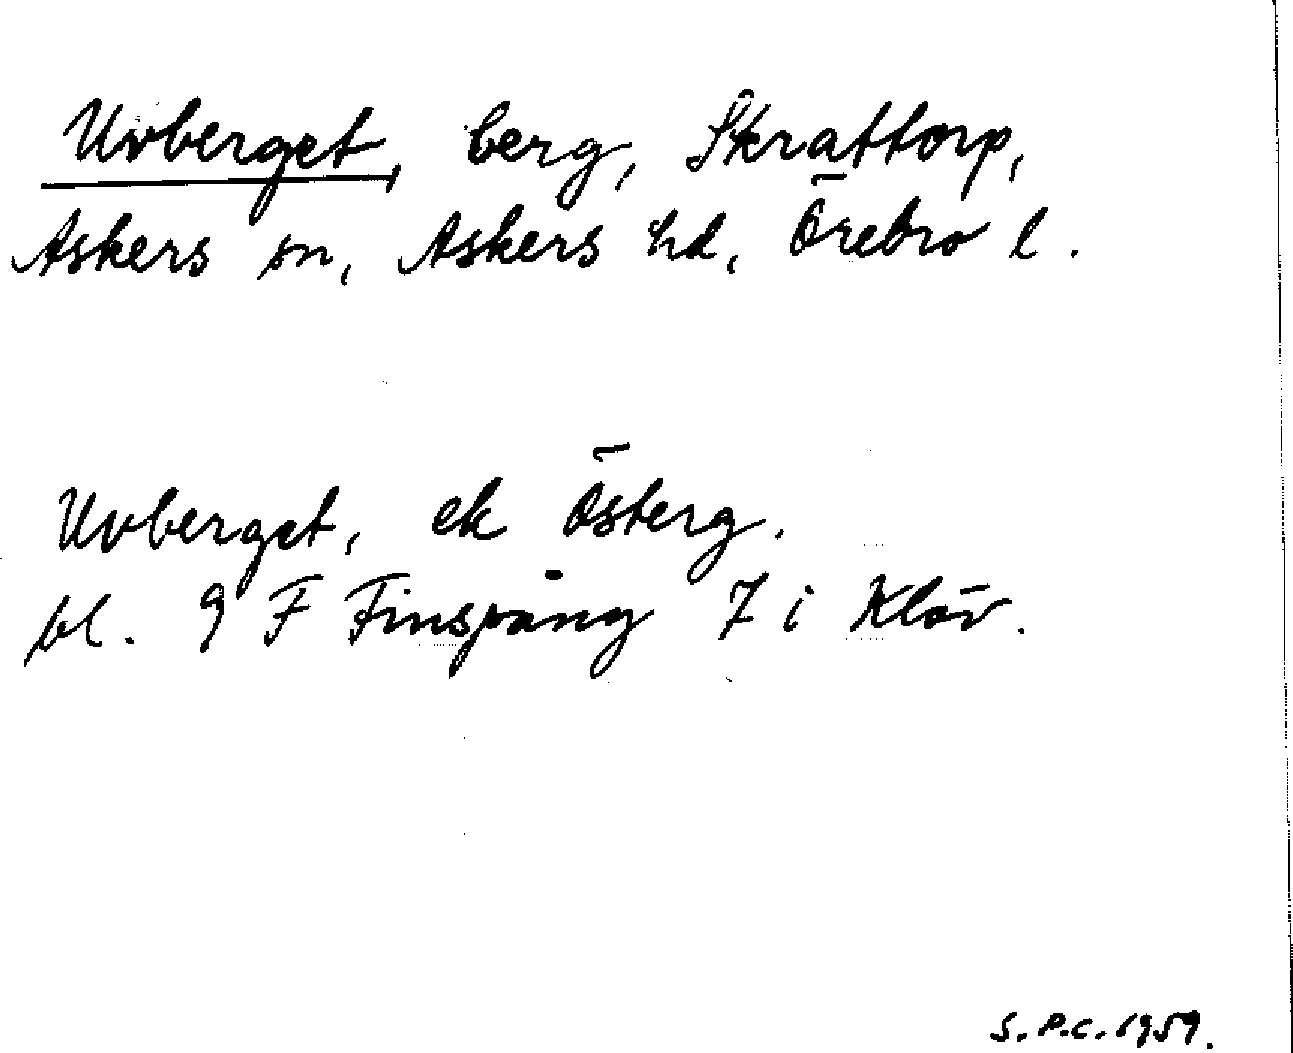 Uvberget, berg, Skrattorp,
Askers sn, Askers hd, Örebro l.
Uvberget, ek Österg.
bl. 9 F Finspång 7 i Klöv.
S.P.C. 1959.